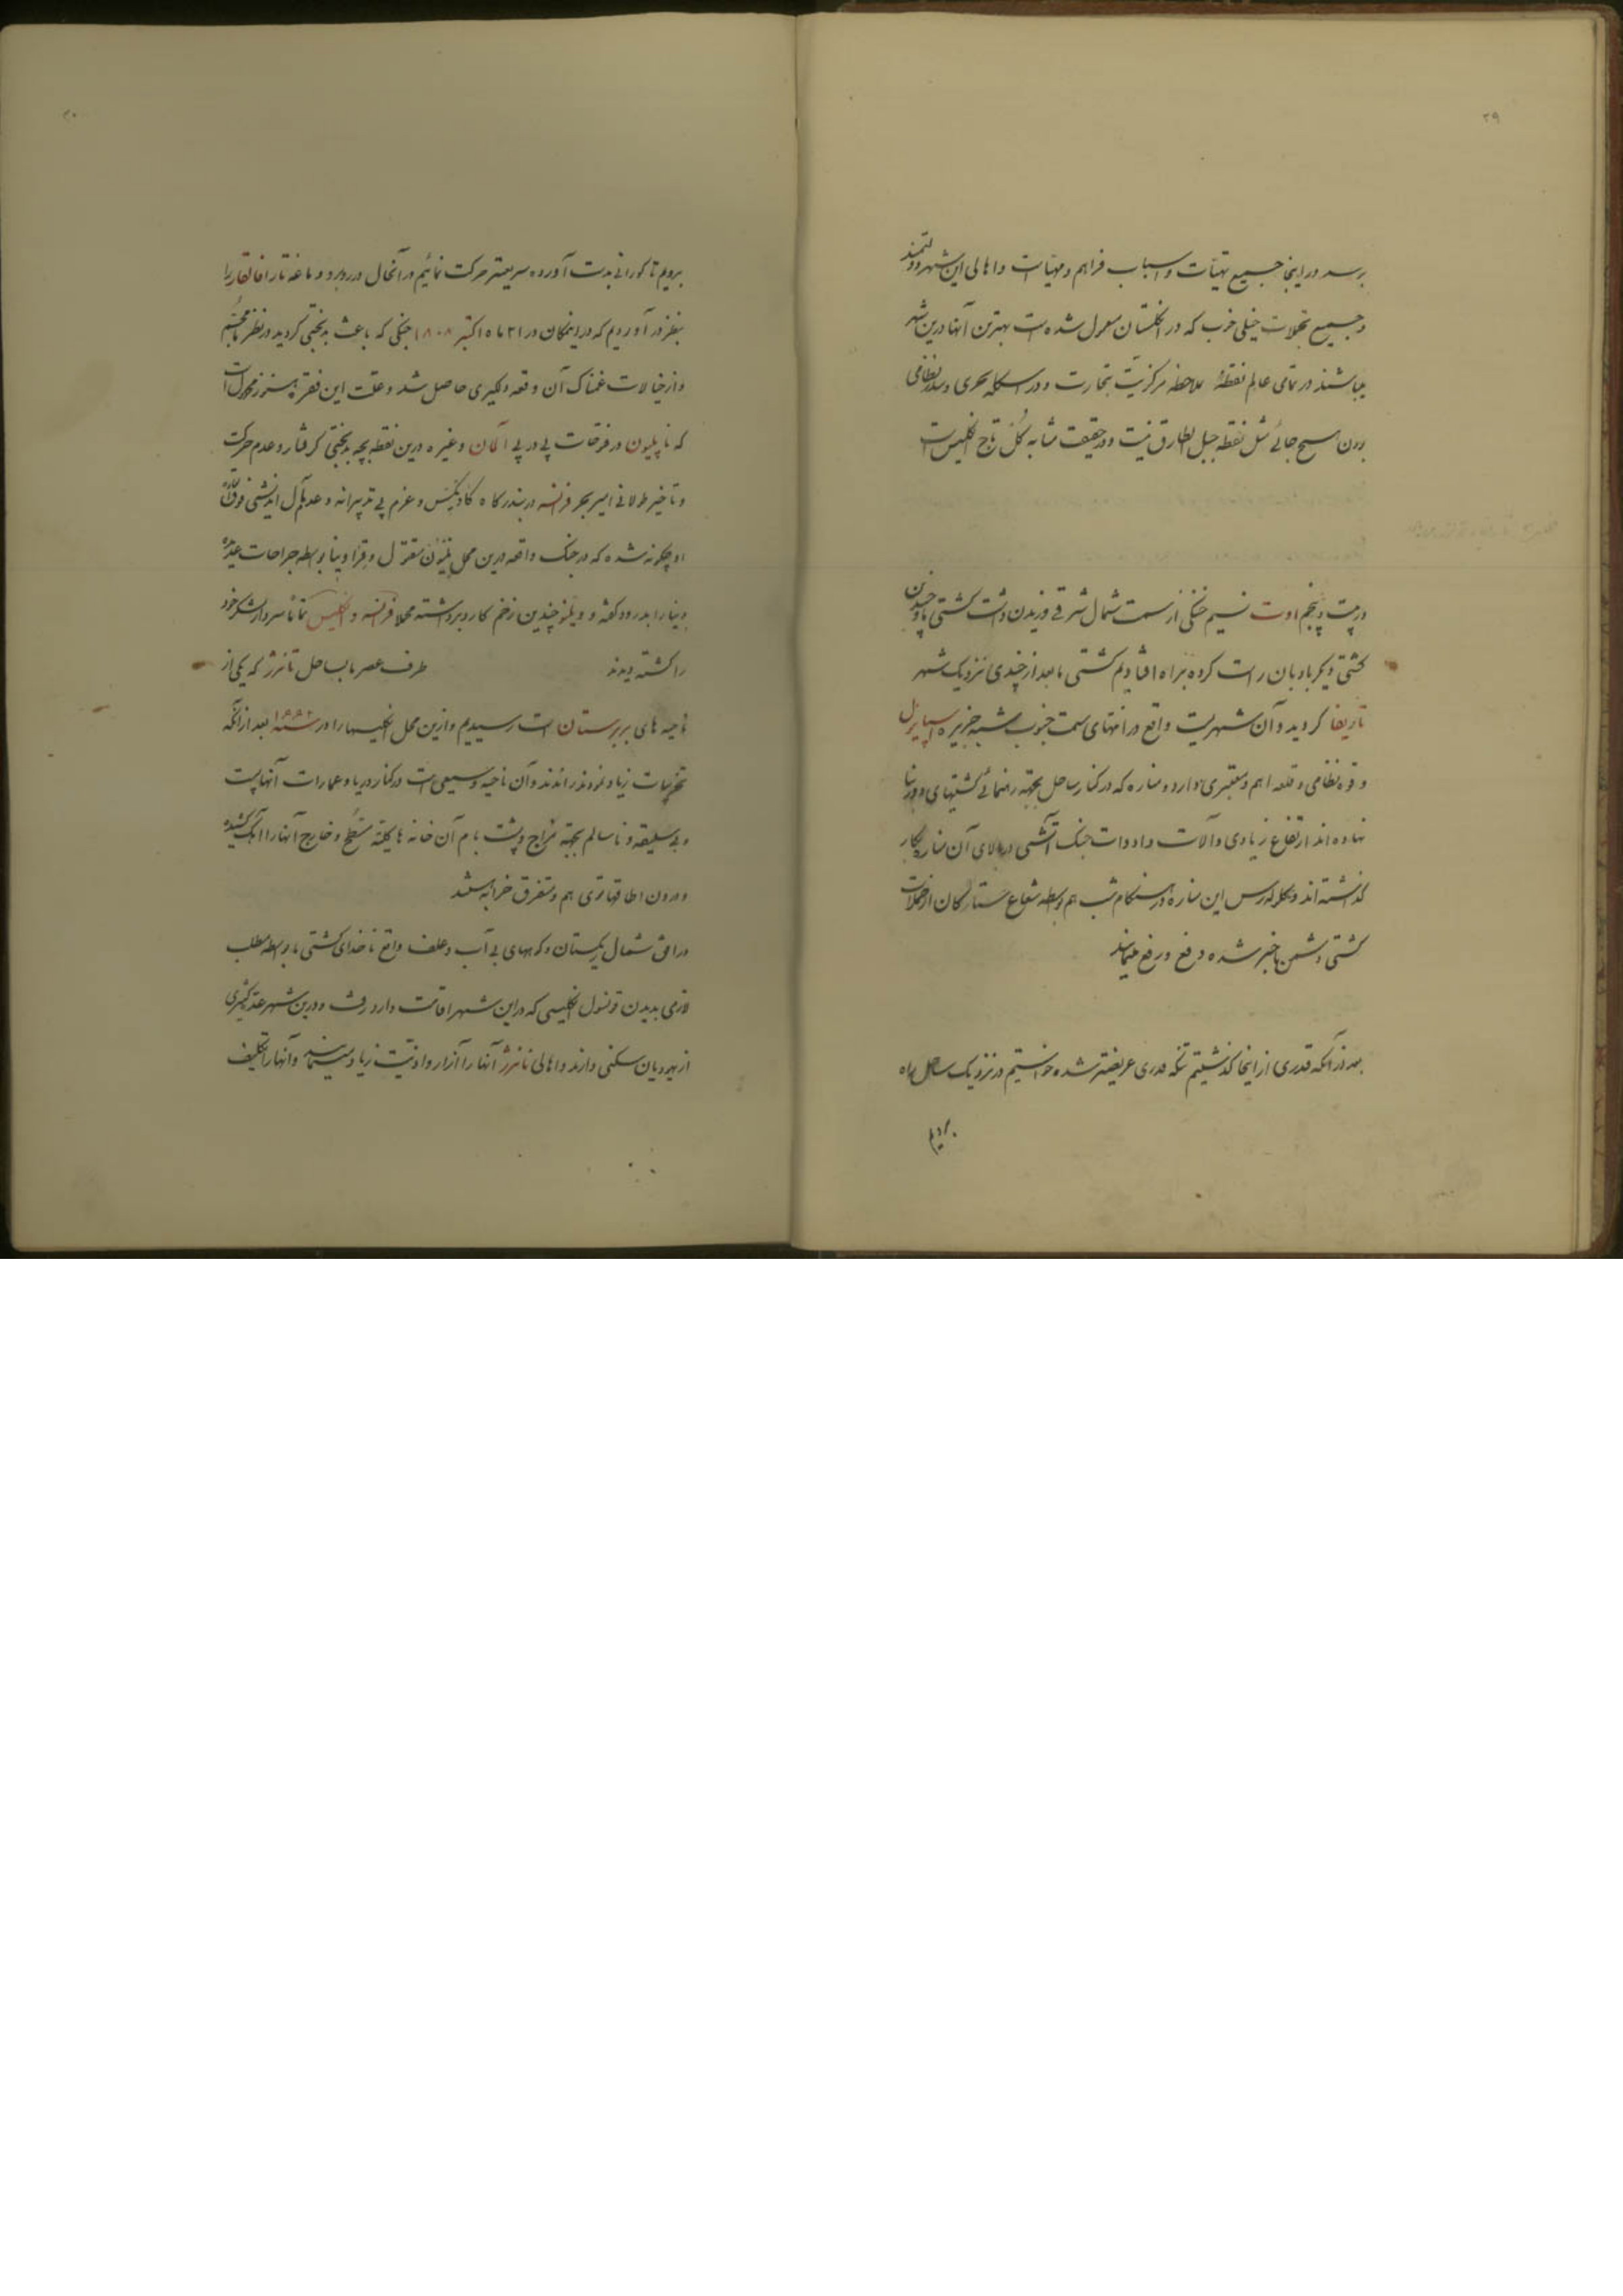 ۲۹
برسد در اینجا جمیع تهیّات و اسباب فراهم و مهیّات و اهالی این شهر دولتمند
و جمیع تجملات خیلی خوب که در انگلستان معمول شده است بهترین آنها درین شهر
میباشند در تمامی عالم نقطهٔ بملاحظه مرکزیّت تجارت و در اسکله بحری و سدّ نظامی
بودن هیچ جائی مثل نقطه جبل الطارق نیست و در حقیقت مشابه گل تاج انگلیس است
در بیست و پنجم اوت نسیم خنکی از سمت شمال شرقی وزیدن داشت کشتی ما و چندین
کشتی دیگر بادبان راست کرده براه افتادیم کشتی ما بعد از چندی نزدیک شهر
تاریفا گردید و آن شهریست واقع در انتهای سمت جنوب شبه جزیره اسپانیول
و قوه نظامی و قلعه اهم و معتبری دارد و مناره که در کنار ساحل بجهة رهنمائی کشتیهای و دریا
نهاده اند ارتفاع زیادی و آلات و ادوات جنک آتشی در بالای آن مناره بکار
گذاشته اند و بکلر لرس این مناره در هنگام شب هم بواسطه شعاع ستارگان از حملات
کشتی دشمن باخبر شده دفع و رفع مینمایند
بعد از آنکه قدری از اینجا گذشتیم تنگه قدری عریضتر شده خواستیم در نزدیک ساحل براه
برویم
۳۰
برویم تا کورانی بدست آورده سریعتر حرکت نمائیم در آنحال در روبرو دماغه تارافالقار را
بنظر در آوردیم که در اینمکان در ۲۱ ماه اکتبر ۱۸۰۸ جنگی که باعث بدبختی گردید در نظر ما مجسّم
و از خیالات غمناک آن وقعه دلگیری حاصل شد و علت این فقره هنوز مجهول است
که ناپلیون در فرقات پی در پی آگان و غیره درین نقطه بچه بدبختی گرفتار و عدم حرکت
و تأخیر طولانی امیر بحر فرانسه در بندرگاه کادیکس و عزم بی تدبیرانه و عدم مآل اندیشی فوق العاده
او چگونه شده که در جنک واقعه درین محل نلزون مقتول و قراوینا بواسطه جراحات عدیده
دنیا را بدرود گفته و ویلنو چندین زخم کارد برداشته مجملا فرانسه و انگلیس تماماً سردار لشکر خود
را کشته دیدند طرف عصر ما بساحل تانژر که یکی از
ناحیه های بربرستان است رسیدیم و ازین محل انگلیسها را در سنه ۱۶۶۲ بعد از آنکه
تخریبات زیاد نمودند راندند و آن ناحیه وسیعی است در کنار دریا و عمارات آنها پست
و بی سلیقه و ناسالم بجهة مزاج و پشت بام آن خانه ها یکلّه مسطّح و خارج آنها را آهک کشیده
و درون اطاقها توی هم و متفرق خرابه هستند
در افق شمال ریگستان و کوههای بی آب و علف واقع ناخدای کشتی ما بواسطه مطلب
لازمی بدیدن قونسول انگلیسی که در این شهر اقامت دارد رفت و درین شهر عدّه کثیری
از یهودیان سکنی دارند و اهالی تانژر آنها را آزار و اذیّت زیاد مینمایند و آنها را تکلیف